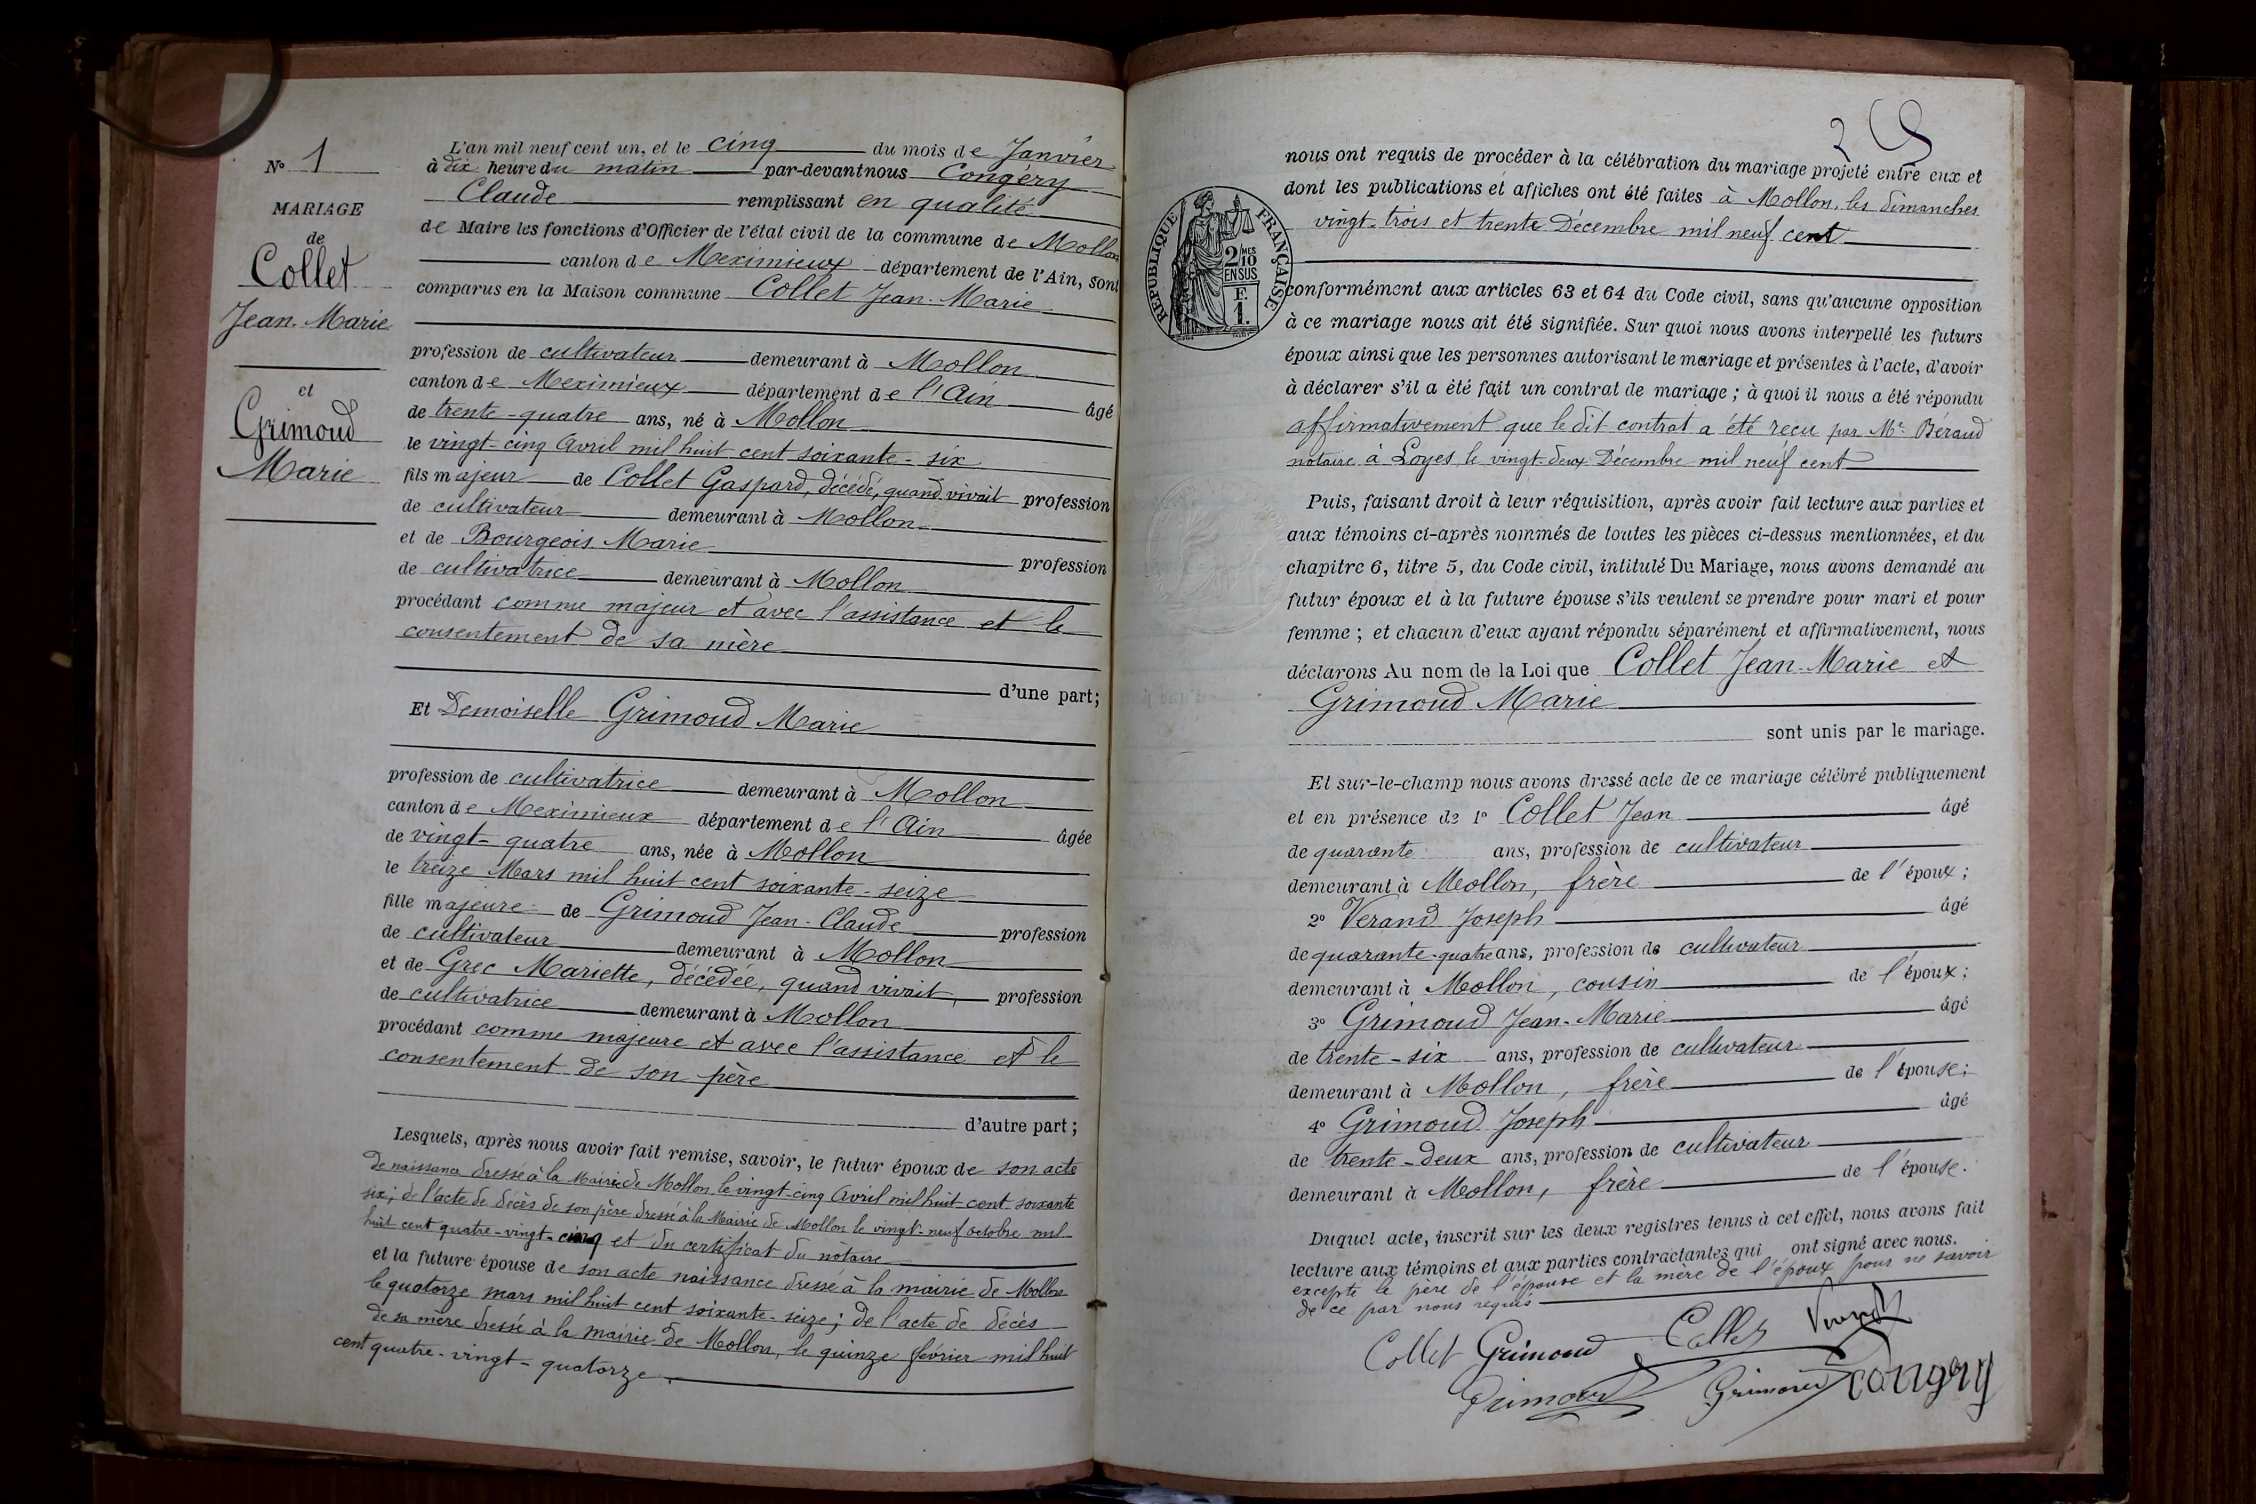 N° 1
MARIAGE
de
Collet
Jean-Marie
et
Grimoud
Marie
L'an mil neuf cent un, et le cinq du mois de Janvier
à dix heure du matin par-devant nous Congery
Claude remplissant en qualité
de Maire les fonctions d'Officier de l'état civil de la commune de Mollon
canton de Meximieux département de l'Ain, sont
comparus en la Maison commune Collet Jean-Marie
profession de cultivateur demeurant à Mollon
canton de Meximieux département de l'Ain âgé
de trente-quatre ans, né à Mollon
le vingt-cinq Avril mil huit cent soixante-six
fils majeur de Collet Gaspard, décédé, quand vivait profession
de cultivateur demeurant à Mollon
et de Bourgeois Marie profession
de cultivatrice demeurant à Mollon
procédant comme majeur et avec l'assistance et le
consentement de sa mère
d'une part;
Et Demoiselle Grimoud Marie
profession de cultivatrice demeurant à Mollon
canton de Meximieux département de l'Ain âgée
de vingt-quatre ans, née à Mollon
le treize Mars mil huit cent soixante-seize
fille majeure de Grimoud Jean-Claude profession
de cultivateur demeurant à Mollon
et de Grec Mariette, décédée, quand vivait, profession
de cultivatrice demeurant à Mollon
procédant comme majeure et avec l'assistance et le
consentement de son père
d'autre part;
Lesquels, après nous avoir fait remise, savoir, le futur époux de son acte
de naissance dressé à la Mairie de Mollon le vingt-cinq Avril mil huit-cent-soixante
six; de l'acte de décès de son père dressé à la Mairie de Mollon le vingt-neuf octobre mil
huit cent quatre-vingt-cinq et du certificat du notaire
et la future épouse de son acte naissance dressé à la mairie de Mollon
le quatorze mars mil huit cent soixante-seize; de l'acte de décès
de sa mère dressé à la mairie de Mollon, le quinze février mil huit
cent quatre-vingt-quatorze.
2
nous ont requis de procéder à la célébration du mariage projeté entre eux et
dont les publications et affiches ont été faites à Mollon, les dimanches
vingt-trois et trente Décembre mil neuf cent
RÉPUBLIQUE FRANÇAISE
2/10 MES
EN SUS
F.
1.
conformément aux articles 63 et 64 du Code civil, sans qu'aucune opposition
à ce mariage nous ait été signifiée. Sur quoi nous avons interpellé les futurs
époux ainsi que les personnes autorisant le mariage et présentes à l'acte, d'avoir
à déclarer s'il a été fait un contrat de mariage; à quoi il nous a été répondu
affirmativement que le dit contrat a été reçu par Me Béraud
notaire à Loyes le vingt-deux Décembre mil neuf cent
Puis, faisant droit à leur réquisition, après avoir fait lecture aux parties et
aux témoins ci-après nommés de toutes les pièces ci-dessus mentionnées, et du
chapitre 6, titre 5, du Code civil, intitulé Du Mariage, nous avons demandé au
futur époux et à la future épouse s'ils veulent se prendre pour mari et pour
femme; et chacun d'eux ayant répondu séparément et affirmativement, nous
déclarons Au nom de la Loi que Collet Jean-Marie et
Grimoud Marie
sont unis par le mariage.
Et sur-le-champ nous avons dressé acte de ce mariage célébré publiquement
et en présence de 1° Collet Jean âgé
de quarante ans, profession de cultivateur
demeurant à Mollon, frère de l'époux;
2° Verand Joseph âgé
de quarante-quatre ans, profession de cultivateur
demeurant à Mollon, cousin de l'époux;
3° Grimoud Jean-Marie âgé
de trente-six ans, profession de cultivateur
demeurant à Mollon, frère de l'épouse;
4° Grimoud Joseph âgé
de trente-deux ans, profession de cultivateur
demeurant à Mollon, frère de l'épouse.
Duquel acte, inscrit sur les deux registres tenus à cet effet, nous avons fait
lecture aux témoins et aux parties contractantes qui ont signé avec nous.
excepté le père de l'épouse et la mère de l'époux pour ne savoir
de ce par nous requis
Collet Grimoud Collet Verand
Grimoud Grimoud Congery